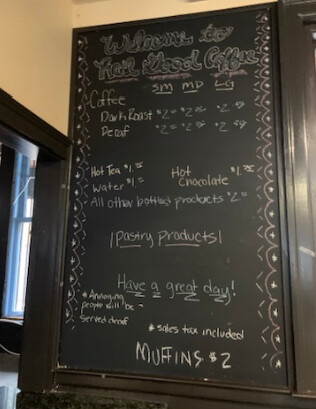 Welcome to
Rail Head Coffee
SM MD LG
Coffee
Dark Roast $2
Decaf
Hot Tea $1.
Water $1.
Hot
Chocolate $1.
All other bottled products $2
Pastry Products
Have a great day!
*Annoying
people will be
served decaf
* sales tax included
MUFFINS $2